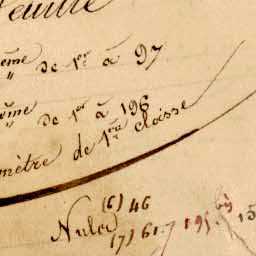 Feuille
ème de 1er à 97
ème de 1er à 196
mètre de 1re classe
(6) 46
Nulle (7) 61. 7 195 bis 15